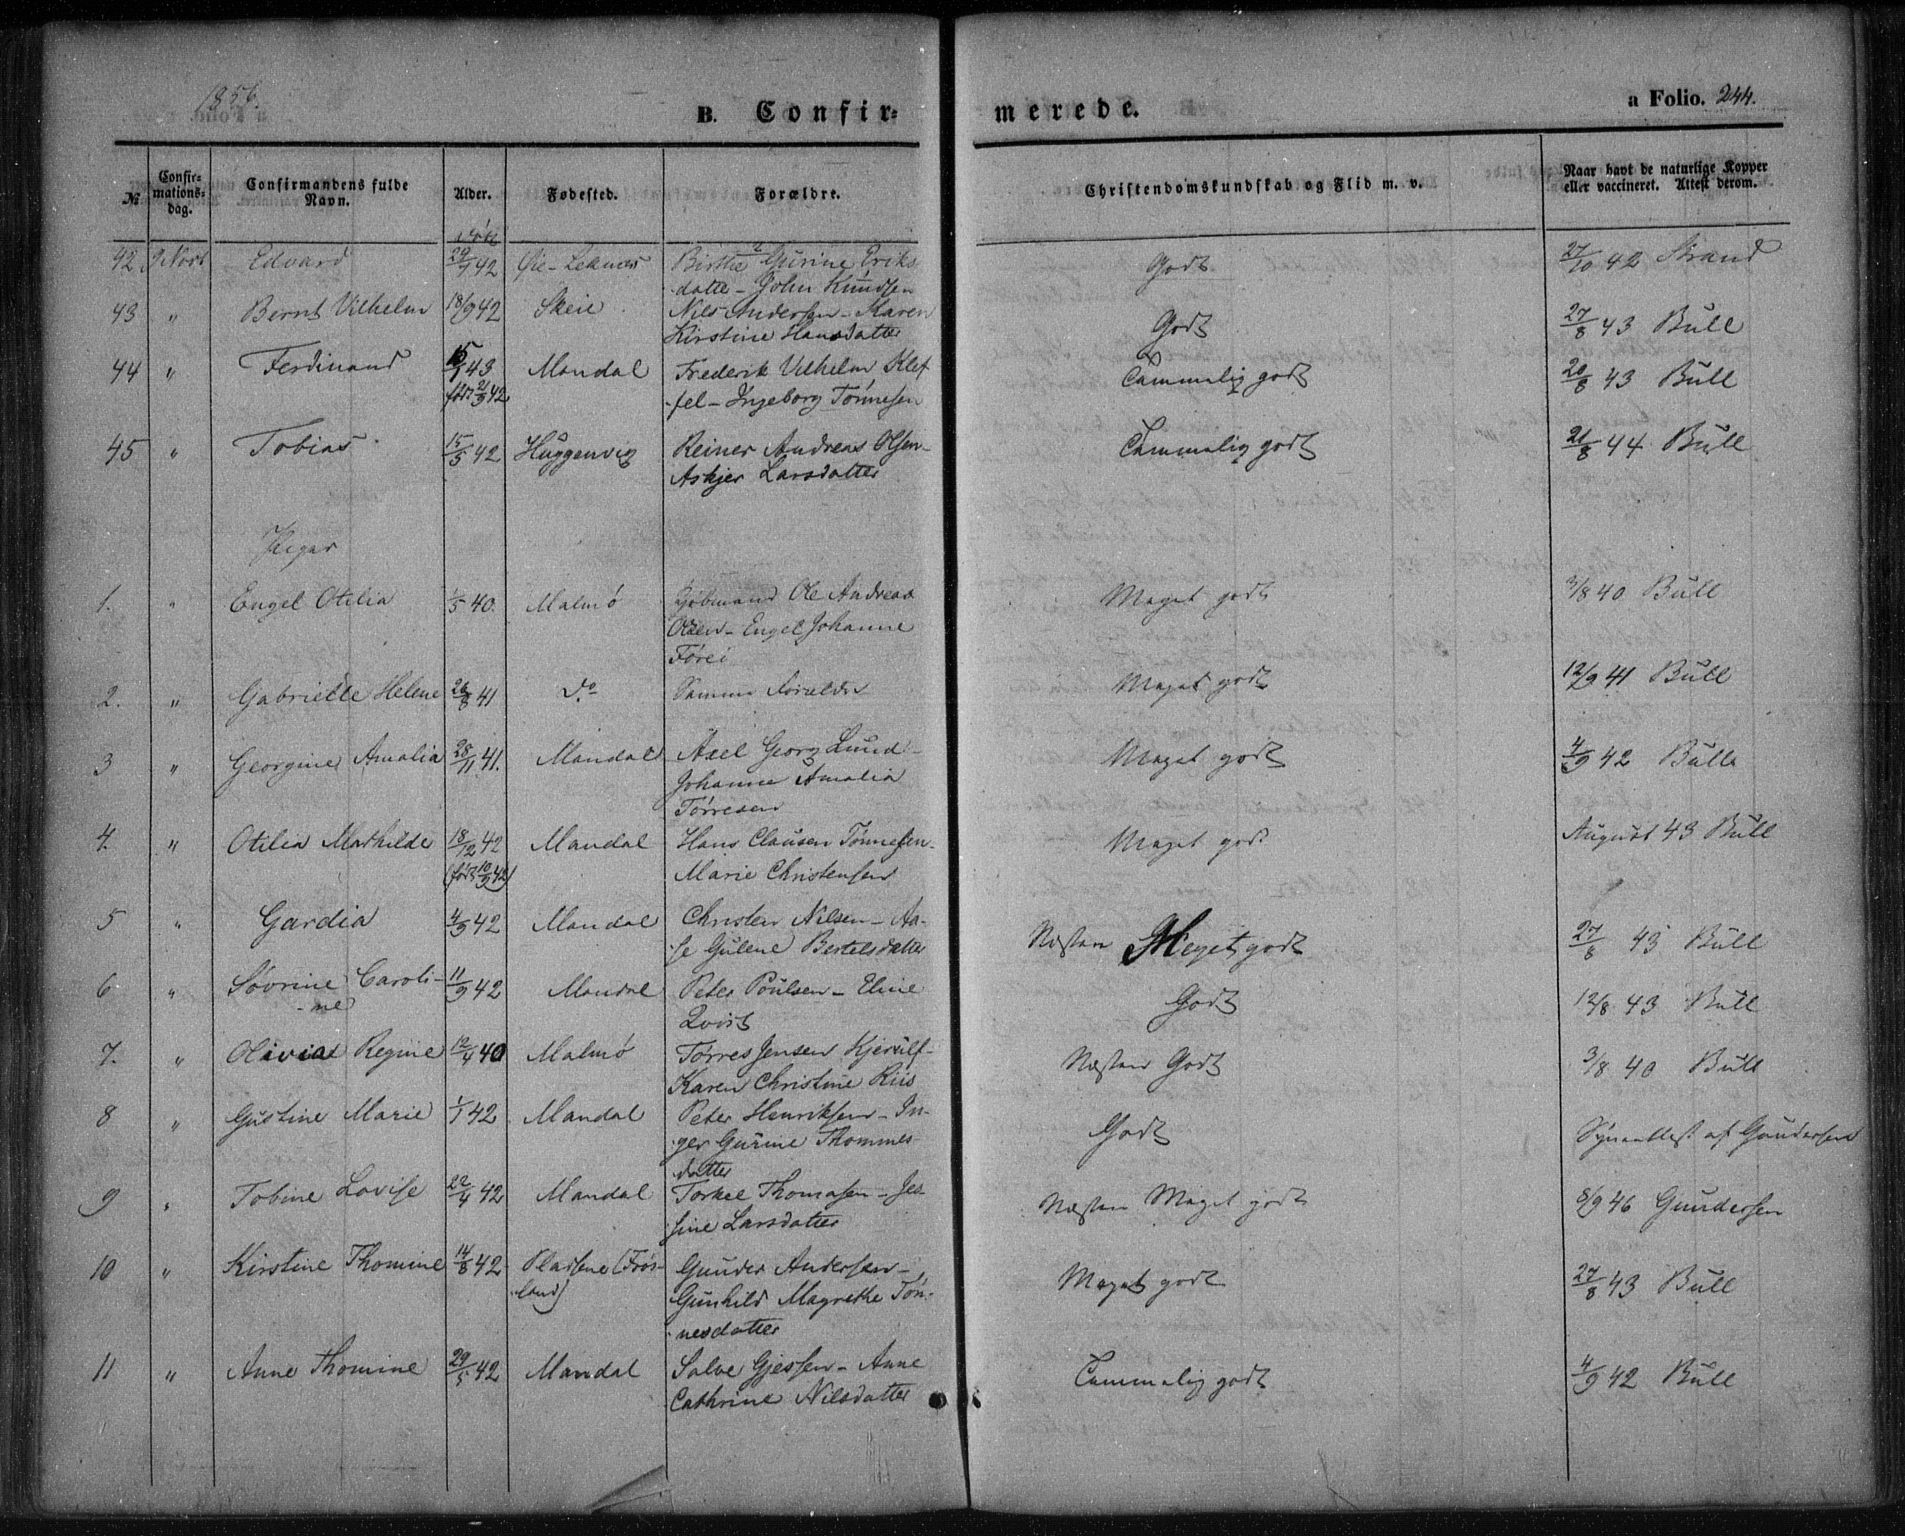 1856.
B. Confirmerede. a Folio. 244.
№ Confirmationsdag. Confirmandens fulde Navn. Alder. Fødested. Forældre. Christendomskundskab og Flid m. v. Naar havt de naturlige Kopper eller vaccineret. Attest derom.
42 9 Novb Edvard 29/1 42 Øie-Leknes Birthe Gurine Eriks Godt 27/10 42 Strand
datte - John Knudsen
43 " Bernt Vilhelm 18/9 42 Skeie Nils Andersen - Karen Godt 27/8 43 Bull
Kirstine Hansdatter
44 " Ferdinand 15/1 43 Mandal Frederik Vilhelm Klef Tammelig godt 20/8 43 Bull
født 21/9 42 fel - Ingeborg Tønnesen
45 " Tobias 15/5 42 Huggenvig Reiner Andreas Olsen - Tammelig godt 21/8 44 Bull
Askjer Larsdatter
Piger
1. " Engel Otilia 1/5 40. Malmø Kjøbmand Ole Andreas Meget godt 3/8 40 Bull
Olsen - Engel Johanne
Førei
2. " Gabrielle Helene 26/8 41 do Samme Forældre Meget godt 12/9 41 Bull
3 " Georgine Amalia 28/11 41. Mandal Axel Georg Lund - Meget godt 4/9 42 Bull
Johanne Amalia
Tørresen
4. " Otilia Mathilde 18/12 42 Mandal Hans Clausen Tønnesen - Meget godt August 43 Bull
(født 10/9 42) Marie Christensen
5 " Gardia 4/9 42 Mandal Christen Nilsen - Aa- Næsten Meget godt 27/8 43 Bull
se Gulene Bertelsdatter
6 " Sövrine Caroli- 11/9 42 Mandal Peter Poulsen - Eline Godt 12/8 43 Bull
ne Qvist
7. " Olivia Regine 12/4 40 Malmø Tørres Jensen Kjerulf - Næsten Godt 3/8 40 Bull
Karen Christine Riis
8 " Gustine Marie 1/1 42 Mandal Peter Henriksen - In- Godt Synsattest af Gundersen
ger Gurine Thommes
datter
9 " Tobine Lovise 22/4 42 Mandal Torkel Thomasen - Jes Næsten Meget godt 8/9 46 Gundersen
sine Larsdatter
10 " Kirstine Thomine 14/8 42 Pladsene (Frøs- Gunder Andersen - Meget godt 27/8 43 Bull
land) Gunhild Magrethe Tøn-
nesdatter
11 " Anne Thomine 29/5 42 Mandal Salve Gjessen - Anne Tammelig godt 4/9 42 Bull
Cathrine Nilsdatter